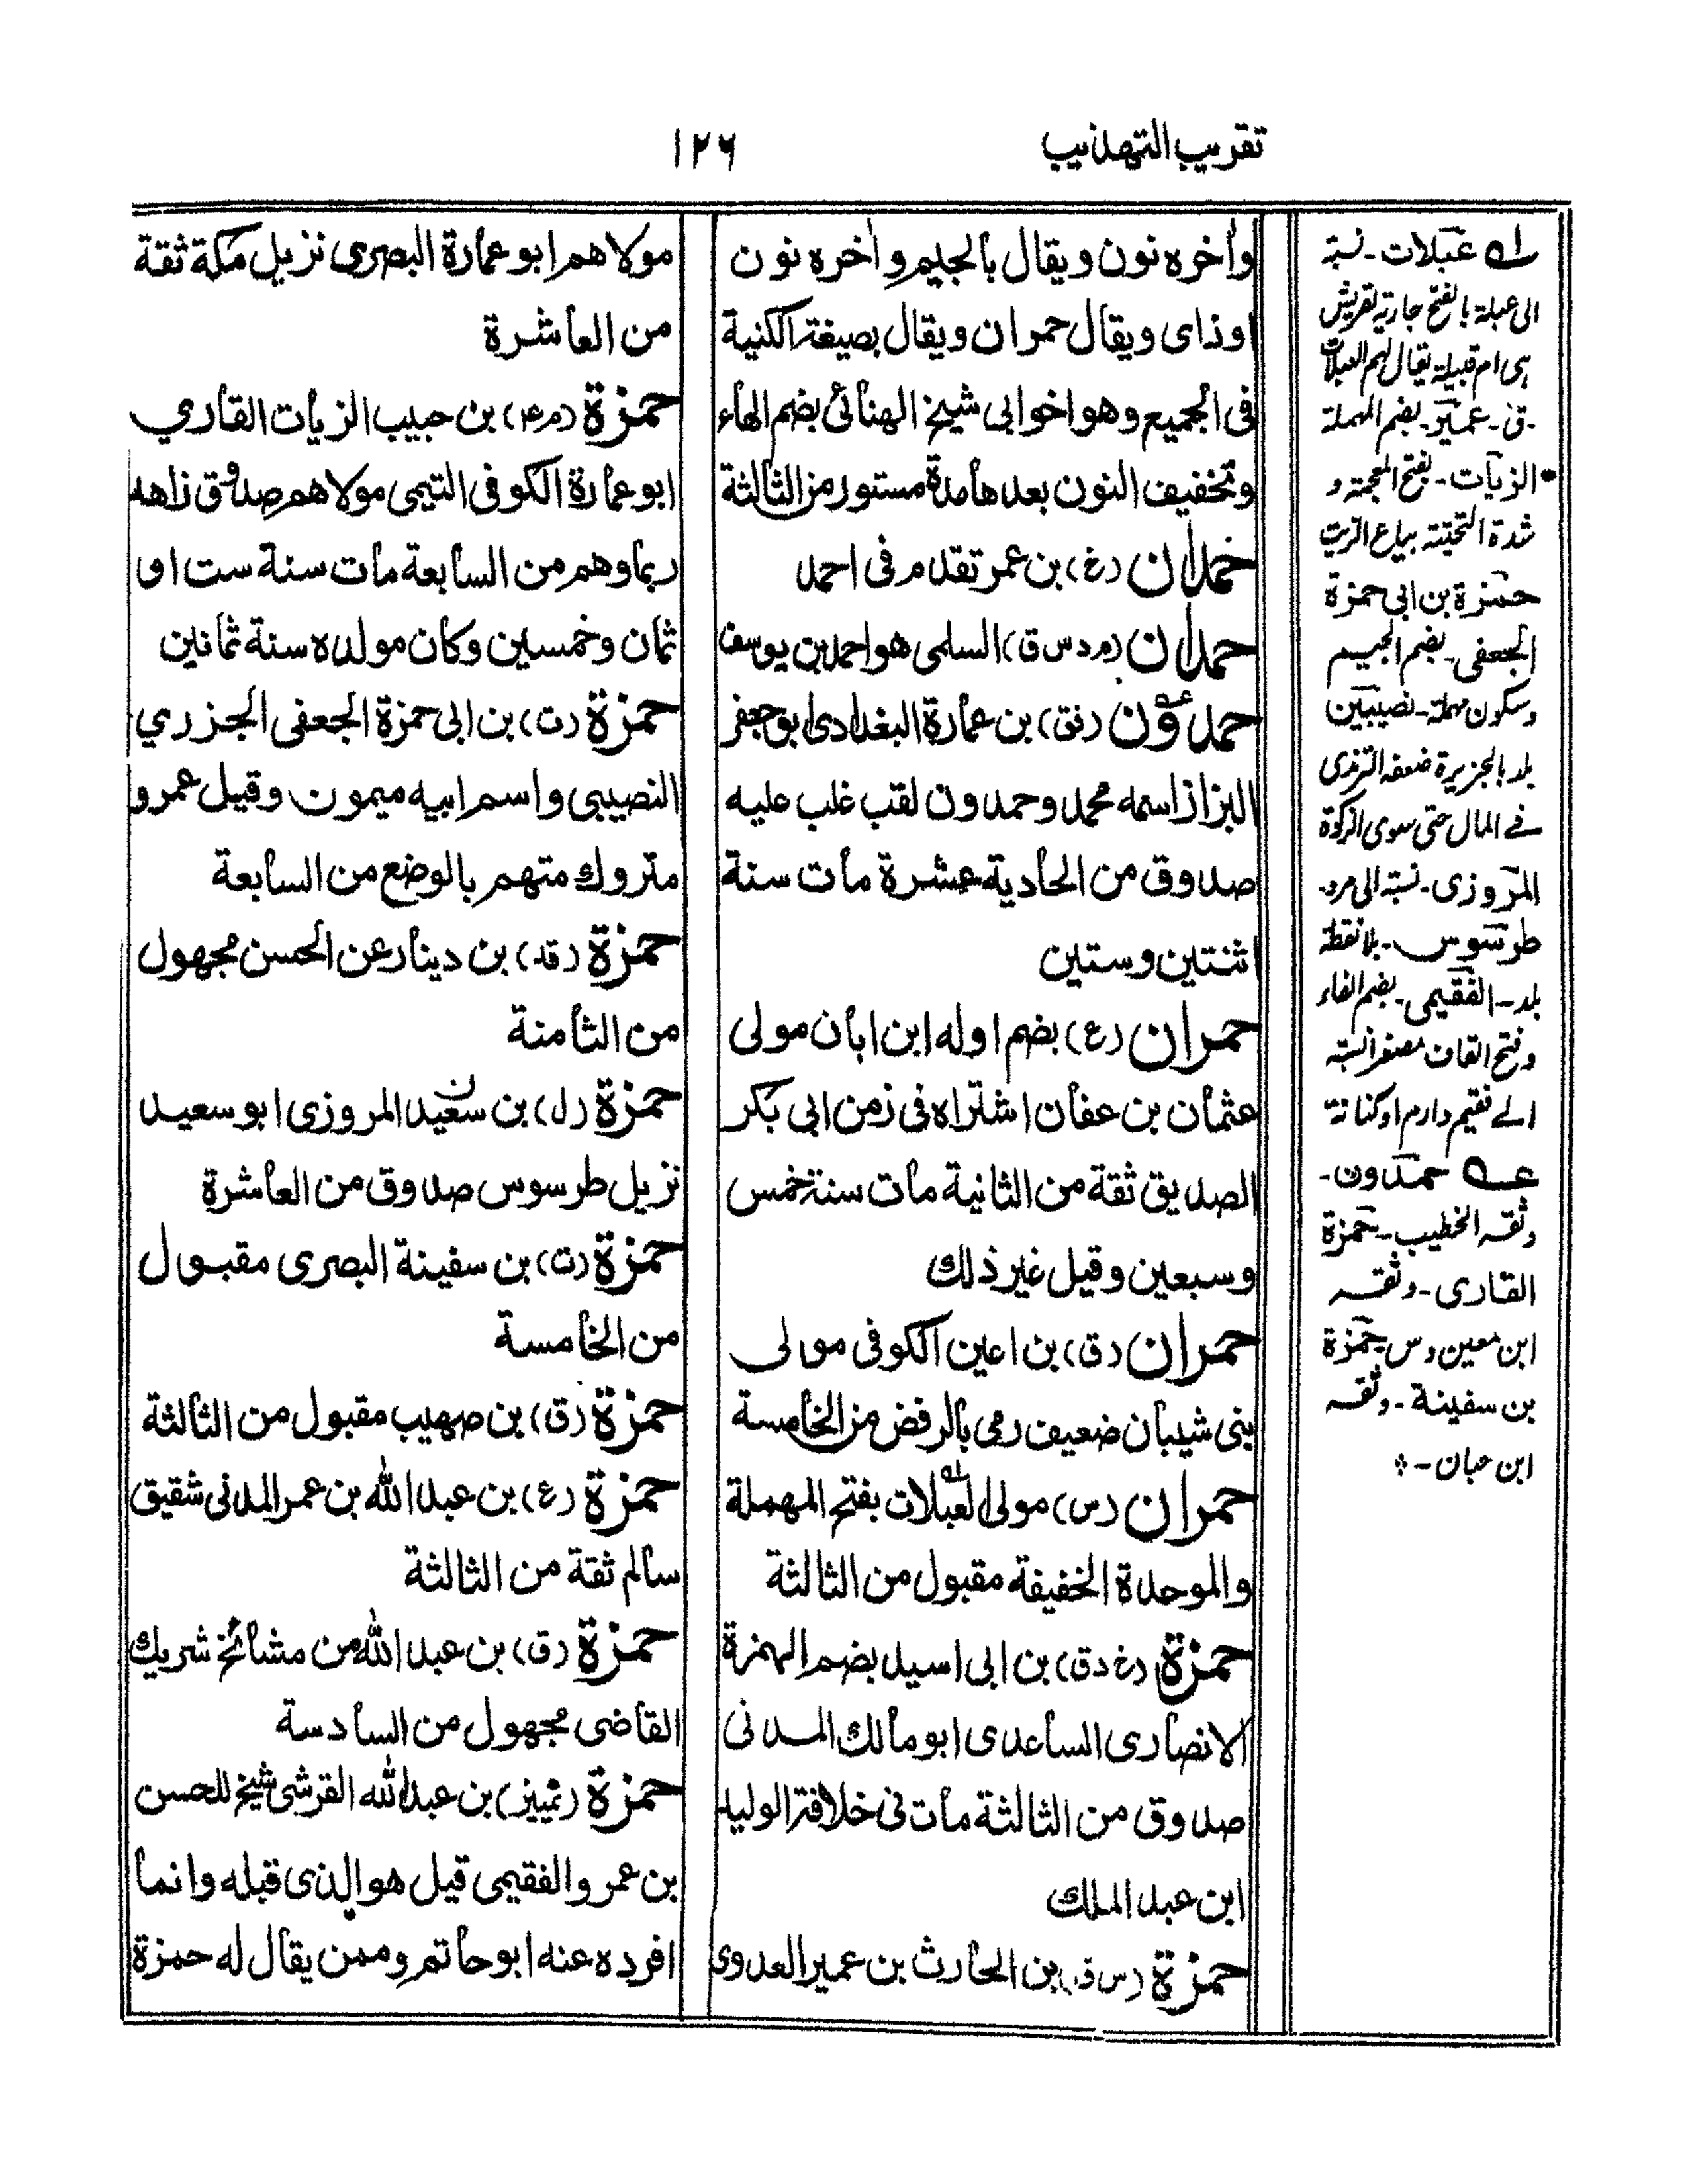 تقريب التهذيب
١٢٦
وأخره نون ويقال بالجيم وأخره نون
اوذاى ويقال حمران ويقال بصيغة الكنية
فى الجميع وهو اخو ابى شيخ الهنائى بضم الهاء
وتخفيف النون بعدها مدة مستور من الثالثة
حمدان (خ) بن عمر تقدم فى احمد
حمدان (م د س ق) السلمى هو احمد بن يوسف
حمدون (فق) بن عمارة البغدادى ابو جعفر
البزاز اسمه محمد وحمدون لقب غلب عليه
صدوق من الحادية عشرة مات سنة
اثنتين وستين
حمران (ع) بضم اوله ابن ابان مولى
عثمان بن عفان اشتراه فى زمن ابى بكر
الصديق ثقة من الثانية مات سنة خمس
وسبعين وقيل غير ذلك
حمران (ق) بن اعين الكوفى مولى
بنى شيبان ضعيف رمى بالرفض من الخامسة
حمران (س) مولى العبلات بفتح المهملة
والموحدة الخفيفة مقبول من الثالثة
حمزة (خ د ق) بن ابى اسيد بضم الهمزة
الانصارى الساعدى ابو مالك المدنى
صدوق من الثالثة مات فى خلافة الوليد
ابن عبد الملك
حمزة (س ق) بن الحارث بن عمير العدوى
مولاهم ابو عمارة البصرى نزيل مكة ثقة
من العاشرة
حمزة (م ع) بن حبيب الزيات القاري
ابو عمارة الكوفى التيمى مولاهم صدوق زاهد
ربما وهم من السابعة مات سنة ست او
ثمان وخمسين وكان مولده سنة ثمانين
حمزة (ت) بن ابى حمزة الجعفى الجزري
النصيبى واسم ابيه ميمون وقيل عمرو
متروك متهم بالوضع من السابعة
حمزة (قد) بن دينار عن الحسن مجهول
من الثامنة
حمزة (ل) بن سعيد المروزى ابو سعيد
نزيل طرسوس صدوق من العاشرة
حمزة (ت) بن سفينة البصرى مقبول
من الخامسة
حمزة (ق) بن صهيب مقبول من الثالثة
حمزة (ع) بن عبد الله بن عمر المدنى شقيق
سالم ثقة من الثالثة
حمزة (ق) بن عبد الله من مشائخ شريك
القاضى مجهول من السادسة
حمزة (تمييز) بن عبد الله القرشى شيخ للحسن
بن عمرو الفقيمى قيل هو الذى قبله وانما
افرده عنه ابو حاتم وممن يقال له حمزة
له عبلات - نسبة
الى عبلة بالفتح جارية لقريش
هى ام قبيلة يقال لهم العبلات
- ق - عمير - بضم المهملة
الزيات - بفتح المعجمة و
شدة التحتية بياع الزيت
حمزة بن ابى حمزة
الجعفى - بضم الجيم
وسكون مهملة - نصيبين
بلد بالجزيرة ضعفه الترمذى
فى المال حتى سوى الزكوة
المروزى - نسبة الى مرو -
طرسوس - بلا نقطة
بلد - الفقيمى - بضم الفاء
وفتح القاف مصغرا نسبة
الى فقيم دارم او كنانة
عه حمدون -
وثقه الخطيب - حمزة
القارى - وثقه
ابن معين وس - حمزة
بن سفينة - وثقه
ابن حبان -